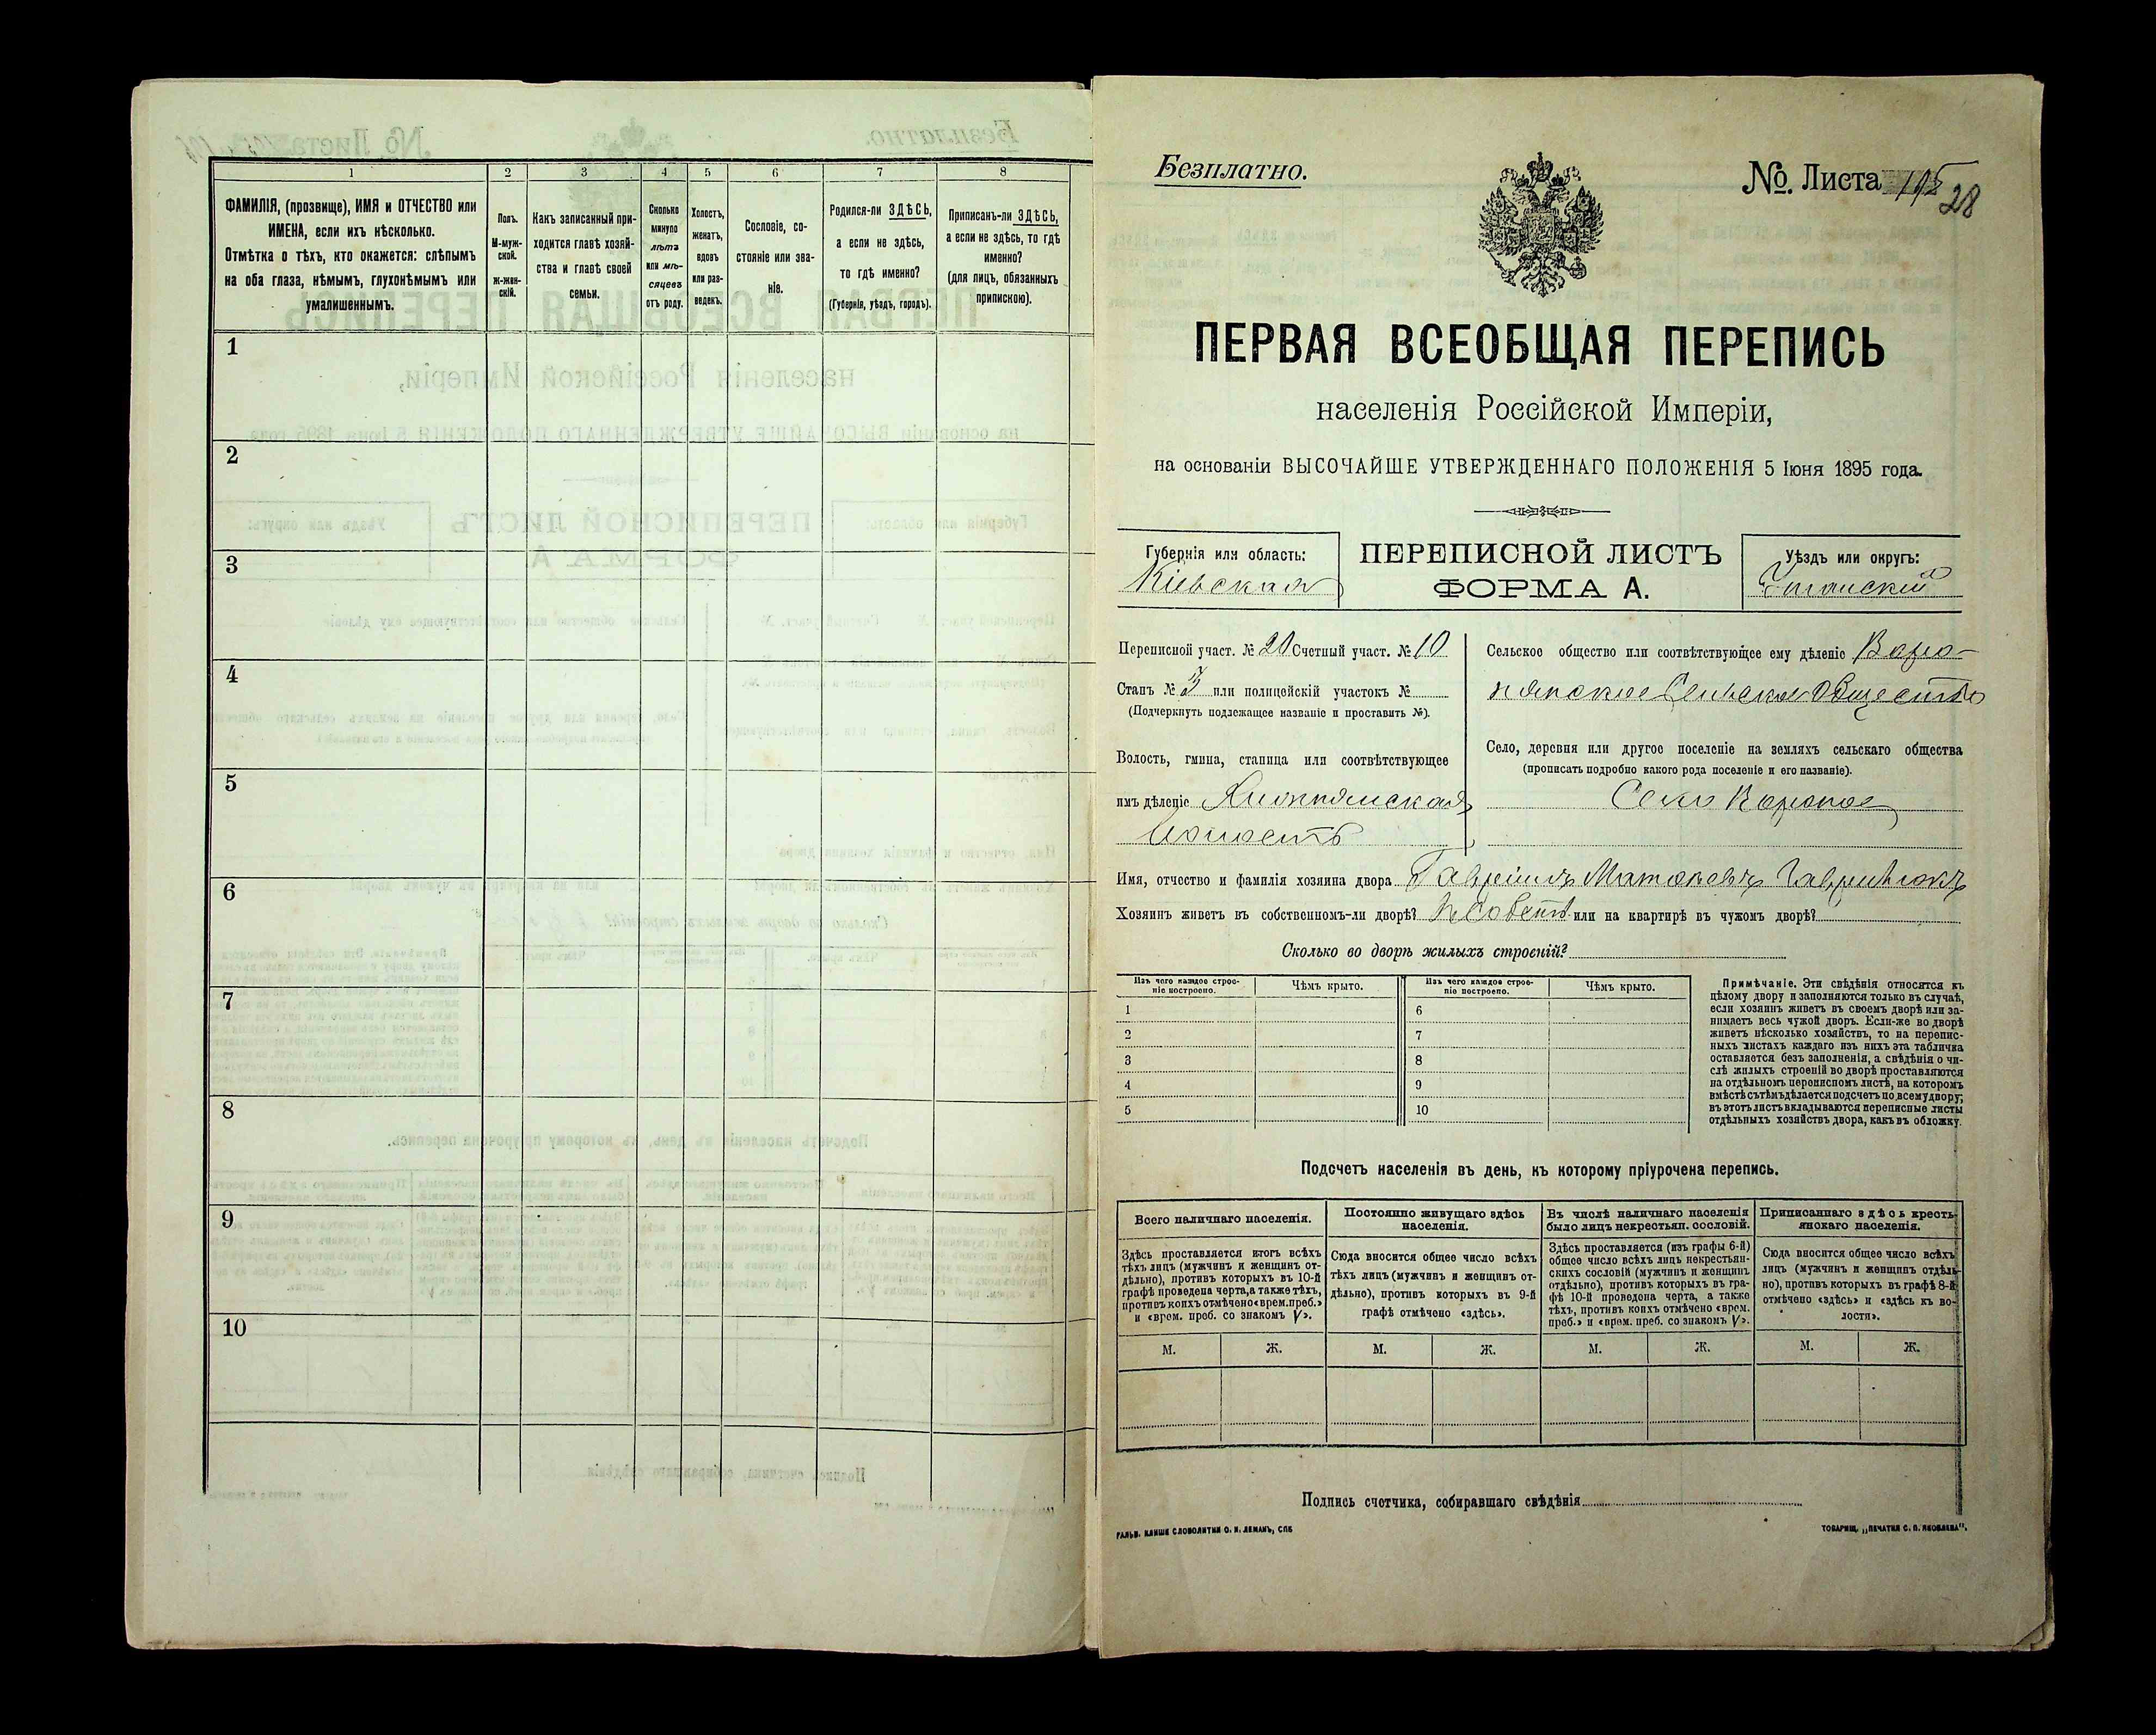 1 2 3 4 5 6 7 8
ФАМИЛІЯ, (прозвище), ИМЯ и ОТЧЕСТВО или
ИМЕНА, если ихъ нѣсколько.
Отмѣтка о тѣхъ, кто окажется: слѣпымъ
на оба глаза, нѣмымъ, глухонѣмымъ или
умалишеннымъ.
Полъ.
М-муж-
ской.
Ж-жен-
скій.
Какъ записанный при-
ходится главѣ хозяй-
ства и главѣ своей
семьи.
Сколько
минуло
лѣтъ
или мѣ-
сяцевъ
отъ роду.
Холостъ,
женатъ,
вдовъ
или раз-
веденъ.
Сословіе, со-
стояніе или зва-
ніе.
Родился-ли ЗДѢСЬ,
а если не здѣсь,
то гдѣ именно?
(Губернія, уѣздъ, городъ).
Приписанъ-ли ЗДѢСЬ,
а если не здѣсь, то гдѣ
именно?
(для лицъ, обязанныхъ
припискою).
1
2
3
4
5
6
7
8
9
10
Безплатно.
№. Листа 28
ПЕРВАЯ ВСЕОБЩАЯ ПЕРЕПИСЬ
населенія Россійской Имперіи,
на основаніи ВЫСОЧАЙШЕ УТВЕРЖДЕННАГО ПОЛОЖЕНІЯ 5 Іюня 1895 года.
Губернія или область:
Кіевская
ПЕРЕПИСНОЙ ЛИСТЪ
ФОРМА А.
Уѣздъ или округъ:
Уманскій
Переписной участ. № 20 Счетный участ. № 10
Станъ № 3 или полицейскій участокъ №
(Подчеркнуть подлежащее названіе и проставить №).
Волость, гмина, станица или соотвѣтствующее
имъ дѣленіе
Волость
Сельское общество или соотвѣтствующее ему дѣленіе
Сельское Общество
Село, деревня или другое поселеніе на земляхъ сельскаго общества
(прописать подробно какого рода поселеніе и его названіе).
Село
Имя, отчество и фамилія хозяина двора Гавріилъ
Хозяинъ живетъ въ собственномъ-ли дворѣ? или на квартирѣ въ чужомъ дворѣ?
Сколько во дворѣ жилыхъ строеній?
Изъ чего каждое строе-
ніе построено.
Чѣмъ крыто.
Изъ чего каждое строе-
ніе построено.
Чѣмъ крыто.
1 6
2 7
3 8
4 9
5 10
Примѣчаніе. Эти свѣдѣнія относятся къ
цѣлому двору и заполняются только въ случаѣ,
если хозяинъ живетъ въ своемъ дворѣ или за-
нимаетъ весь чужой дворъ. Если-же во дворѣ
живетъ нѣсколько хозяйствъ, то на перепис-
ныхъ листахъ каждаго изъ нихъ эта табличка
оставляется безъ заполненія, а свѣдѣнія о чи-
слѣ жилыхъ строеній во дворѣ проставляются
на отдѣльномъ переписномъ листѣ, на которомъ
вмѣстѣ съ тѣмъ дѣлается подсчетъ по всему двору;
въ этотъ листъ вкладываются переписные листы
отдѣльныхъ хозяйствъ двора, какъ въ обложку.
Подсчетъ населенія въ день, къ которому пріурочена перепись.
Всего наличнаго населенія.
Здѣсь проставляется итогъ всѣхъ
тѣхъ лицъ (мужчинъ и женщинъ от-
дѣльно), противъ которыхъ въ 10-й
графѣ проведена черта, а также тѣхъ,
противъ коихъ отмѣчено «врем. преб.»
и «врем. преб. со знакомъ V».
Постоянно живущаго здѣсь
населенія.
Сюда вносится общее число всѣхъ
тѣхъ лицъ (мужчинъ и женщинъ от-
дѣльно), противъ которыхъ въ 9-й
графѣ отмѣчено «здѣсь».
Въ числѣ наличнаго населенія
было лицъ некрестьян. сословій.
Здѣсь проставляется (изъ графы 6-й)
общее число всѣхъ лицъ некрестьян-
скихъ сословій (мужчинъ и женщинъ
отдѣльно), противъ которыхъ въ гра-
фѣ 10-й проведена черта, а также
тѣхъ, противъ коихъ отмѣчено «врем.
преб.» и «врем. преб. со знакомъ V».
Приписаннаго здѣсь кресть-
янскаго населенія.
Сюда вносится общее число всѣхъ
лицъ (мужчинъ и женщинъ отдѣль-
но), противъ которыхъ въ графѣ 8-й
отмѣчено «здѣсь» и «здѣсь къ во-
лости».
М. Ж. М. Ж. М. Ж. М. Ж.
Подпись счетчика, собиравшаго свѣдѣнія
ГАЛЬВ. КЛИШЕ СЛОВОЛИТНИ О. И. ЛЕМАНЪ, СПБ
ТОВАРИЩ. „ПЕЧАТНЯ С. П. ЯКОВЛЕВА".